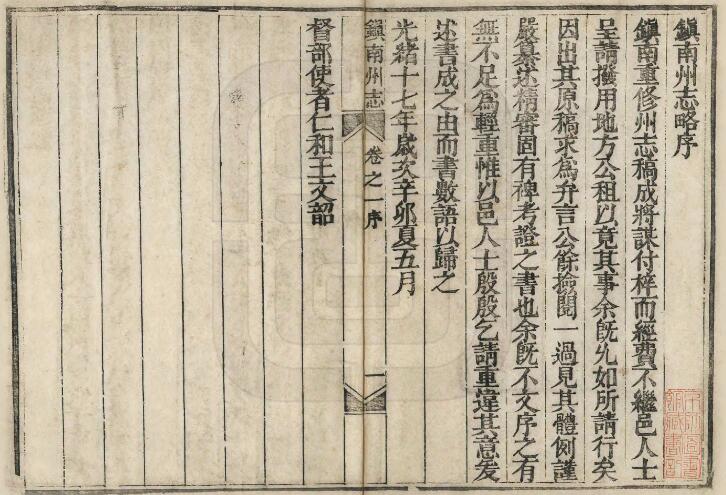 鎭南州志略序
鎭南重修州志稿成將謀付梓而經費不繼邑人士
呈請撥用地方公租以竟其事余旣允如所請行矣
因出其原稿求爲弁言公餘撿閱一過見其體例謹
嚴纂述精審固有裨考證之書也余旣不文序之有
無不足爲輕重惟以邑人士殷殷乞請重違其意爰
述書成之由而書數語以歸之
光緒十七年歲次辛卯夏五月
鎭南州志
卷之一序
一
督部使者仁和王文韶